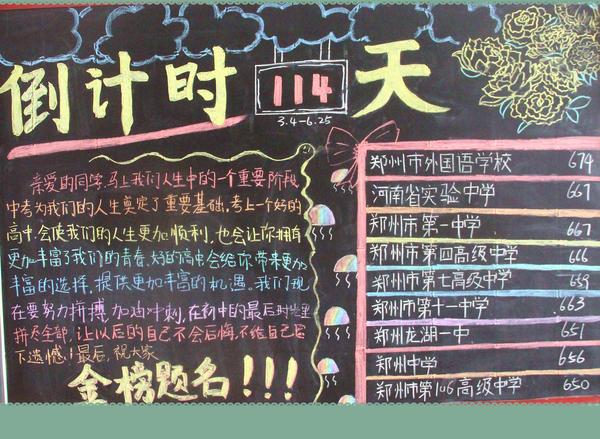 倒计时 114 天
3.4-6.25
亲爱的同学,马上我们人生中的一个重要阶段
中考为我们的人生奠定了重要基础,考上一个好的
高中,会使我们的人生更加顺利,也会让你拥有
更加丰富了我们的青春,好的高中,会给你带来更加
丰富的选择,提供更加丰富的机遇,我们现
在要努力拼搏,加油冲刺,在初中的最后时光里
拼尽全部,让以后的自己不会后悔,不给自己留
下遗憾!最后,祝大家
金榜题名!!!
郑州市外国语学校 674
河南省实验中学 667
郑州市第一中学 667
郑州市第四高级中学 666
郑州市第七高级中学 659
郑州市第十一中学 663
郑州龙湖一中 651
郑州中学 656
郑州师第106高级中学 650